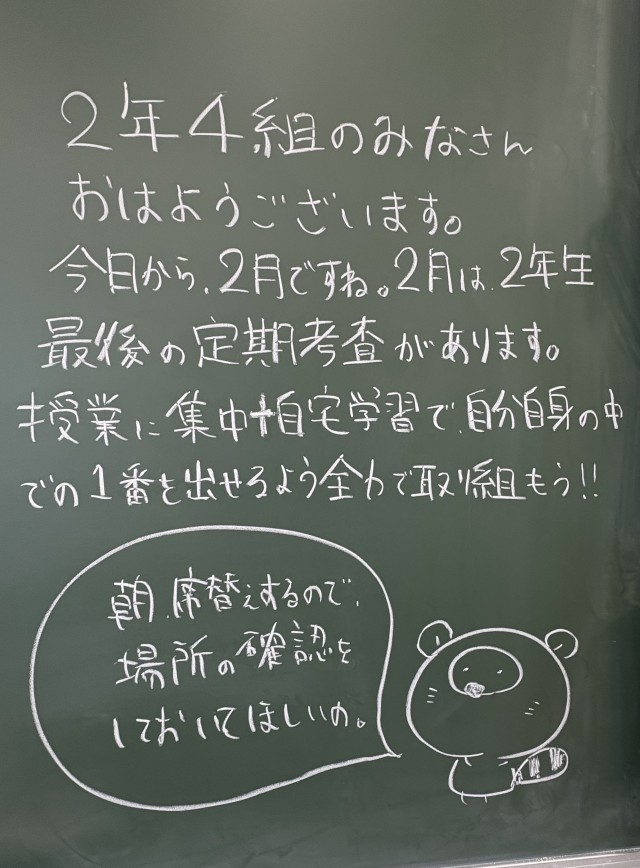 2年4組のみなさん
おはようございます。
今日から、2月ですね。2月は、2年生
最後の定期考査があります。
授業に集中+自宅学習で、自分自身の中
での1番を出せるよう全力で取り組もう!!
朝、席替えするので、
場所の確認を
しておいてほしいの。